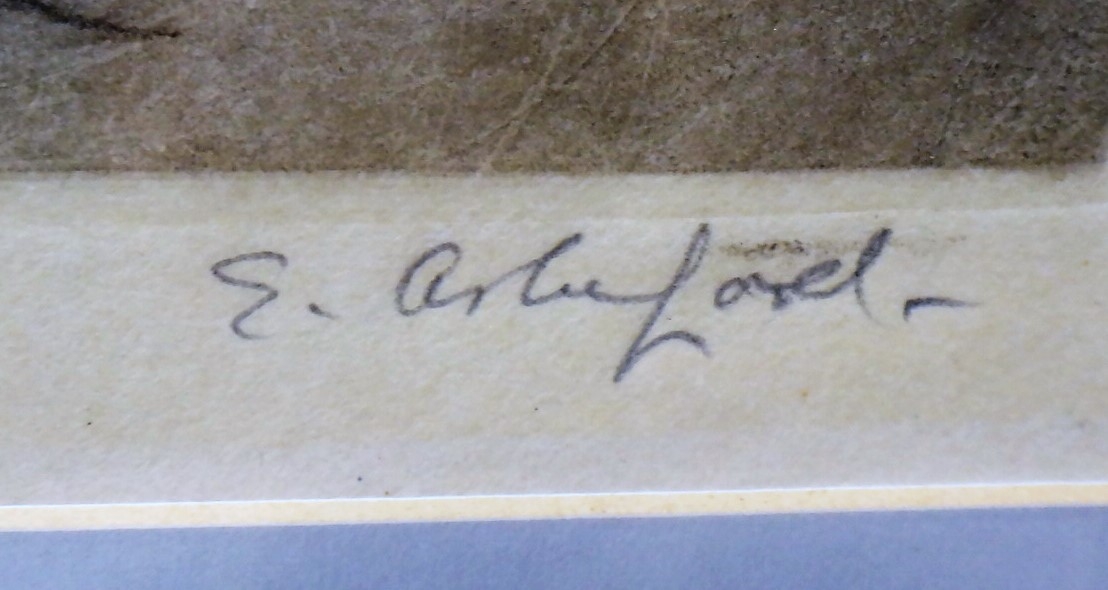 E. Ashenford.-